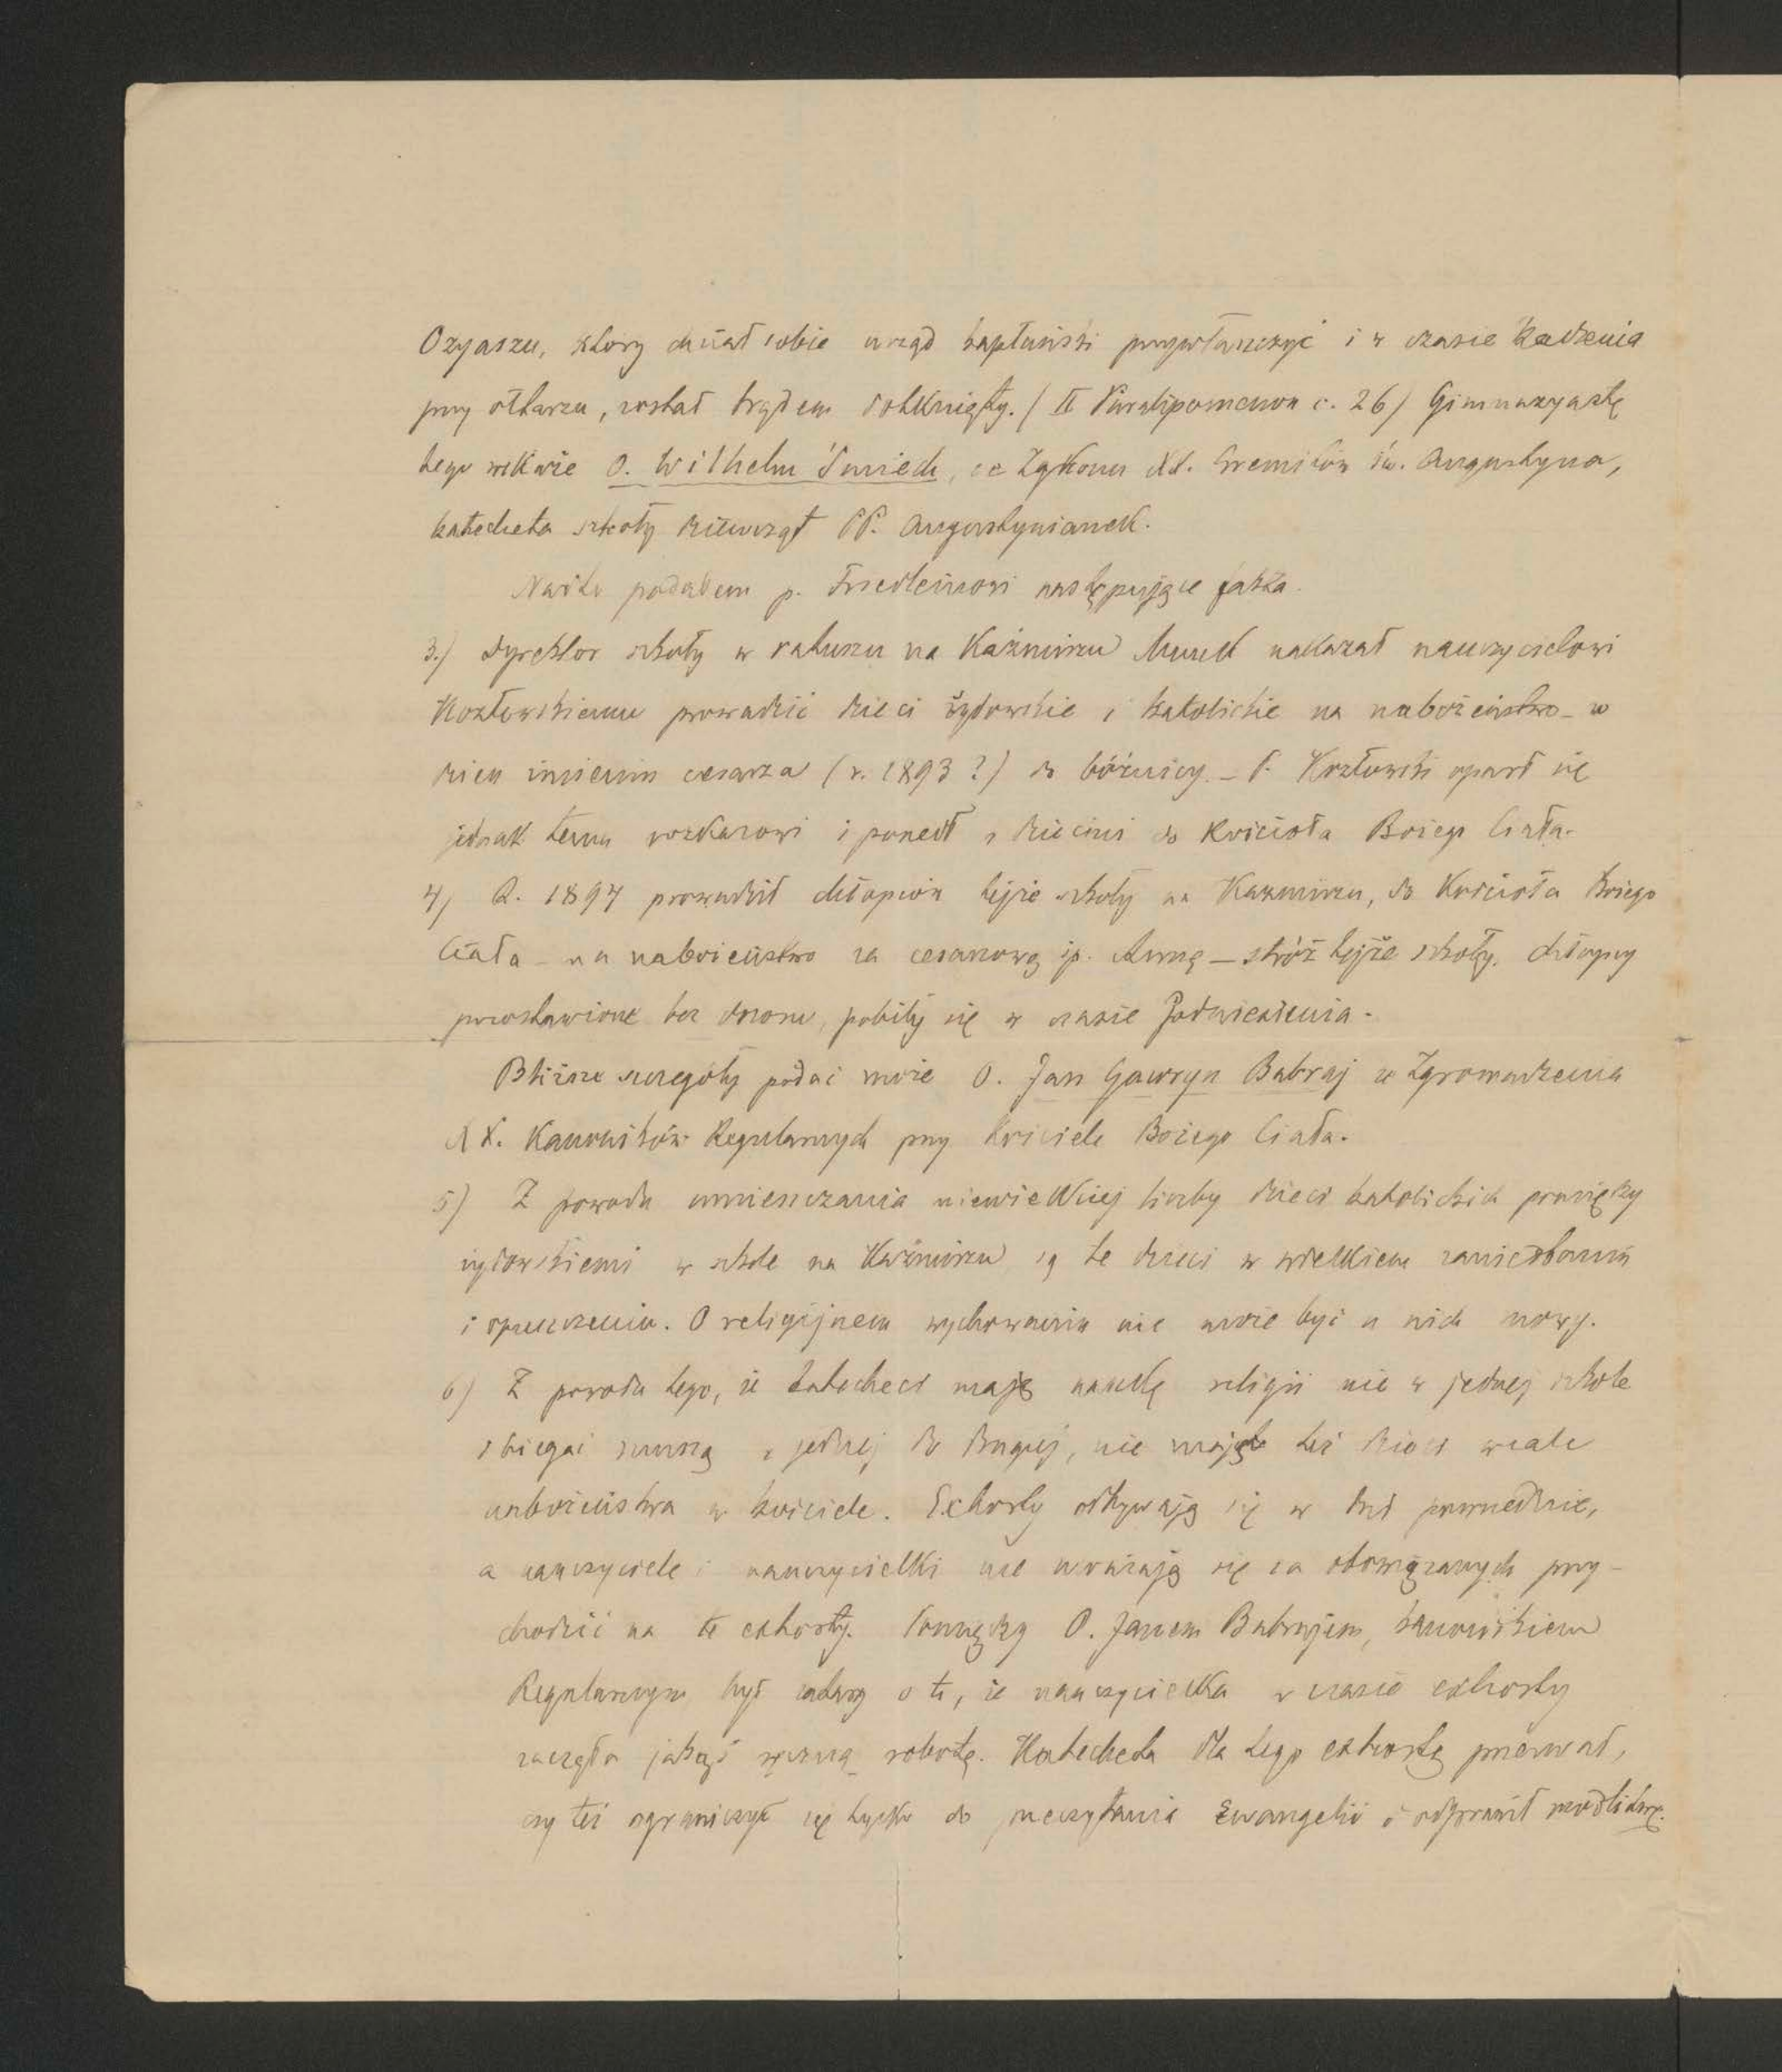 Ozyaszu, który chciał sobie urząd kapłański przywłaszczyć i w czasie kadzenia
przy ołtarzu, został trądem dotknięty. (II Paralipomenon c. 26) Gimnazyastę
tego wskaże O. Wilhelm Śmiech, ze Zakonu XX. Eremitów św. Augustyna,
katecheta szkoły dziewcząt PP. Augustynianek.
Nadto podałem p. Friedleinowi następujące fakta.
3.) Dyrektor szkoły w ratuszu na Kaźmirzu nakazał nauczycielowi
Kozłowskiemu prowadzić dzieci żydowskie i katolickie na nabożeństwo - w
dzień imienin cesarza (r. 1893?) do bóżnicy. - P. Kozłowski oparł się
jednak temu rozkazowi i poszedł z dziećmi do kościoła Bożego Ciała.
4) R. 1897 prowadził chłopców tejże szkoły na Kazmirzu, do Kościoła Bożego
Ciała - na nabożeństwo za cesarzową śp. Annę - stróż tejże szkoły. Chłopcy
pozostawione bez dozoru, pobiły się w czasie Podniesienia.
Bliższe szczegóły podać może O. Jan Gawryn Babraj ze Zgromadzenia
XX. Kanoników Regularnych przy kościele Bożego Ciała.
5) Z powodu umieszczania niewielkiej liczby dzieci katolickich pomiędzy
żydowskiemi w szkole na Kaźmirzu są te dzieci w wielkiem zaniedbaniu
i opuszczeniu. O religijnem wychowaniu nie może być u nich mowy.
6) Z powodu tego, że katecheci mają naukę religii nie w jednej szkole
i biegać muszą z jednej do drugiej, nie mają też dzieci wcale
nabożeństwa w kościele. Exhorty odbywają się w dni powszednie,
a nauczyciele i nauczycielki nie uważają się za obowiązanych przy-
chodzić na te exhorty. Pomiędzy O. Janem Babrajem, kanonikiem
Regularnym był zatarg o to, że nauczycielka w czasie exhorty
zaczęła jakąś ręczną robotę. Katecheta dla tego exhortę przerwał,
czy też ograniczył się tylko do przeczytania Ewangelii i odprawił modlitwę.